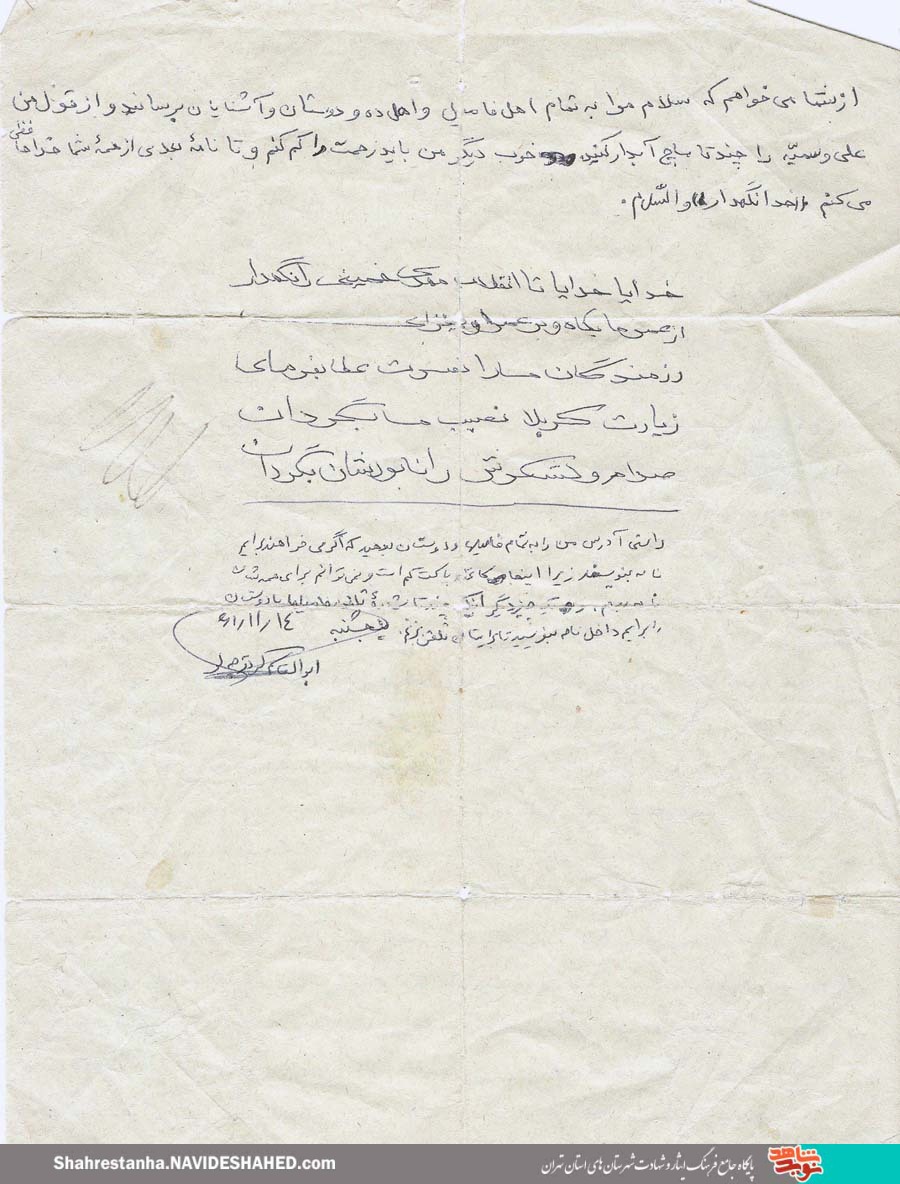 از شما می خواهم که سلام مرا به تمام اهل فامیل و اهل ده و دوستان و آشنایان برسانید و از قول من
علی و سمیّه را چند تا ماچ آبدار کنید خوب دیگر من باید زحمت را کم کنم و تا نامهٔ بعدی از همهٔ شما خداحافظی
می کنم «خدانگهدار» والسّلام.
خدایا خدایا تا انقلاب مهدی خمینی را نگهدار
از عمر ما بکاه و بر عمر او بیفزای
رزمندگان ما را نصرت عطا بفرمای
زیارت کربلا نصیب ما بگردان
صدام و لشکرش را نابودشان بگردان
راستی آدرس من را به تمام فامیل و دوستان بدهید که اگر می خواهند برایم
نامه بنویسند زیرا اینجا کاغذ پاکت کم است و نمی توانم برای همه شان
نامه بدهم. چیز دیگر اینکه شمارهٔ تلفن فامیلها یا دوستان
را برایم داخل نامه بنویسید تا برایتان تلفن بزنم. پنجشنبه ۶۱/۱۱/۱۴
ابوالقاسم
Shahrestanha.NAVIDESHAHED.com
پایگاه جامع فرهنگ ایثار و شهادت شهرستان های استان تهران
نوید شاهد